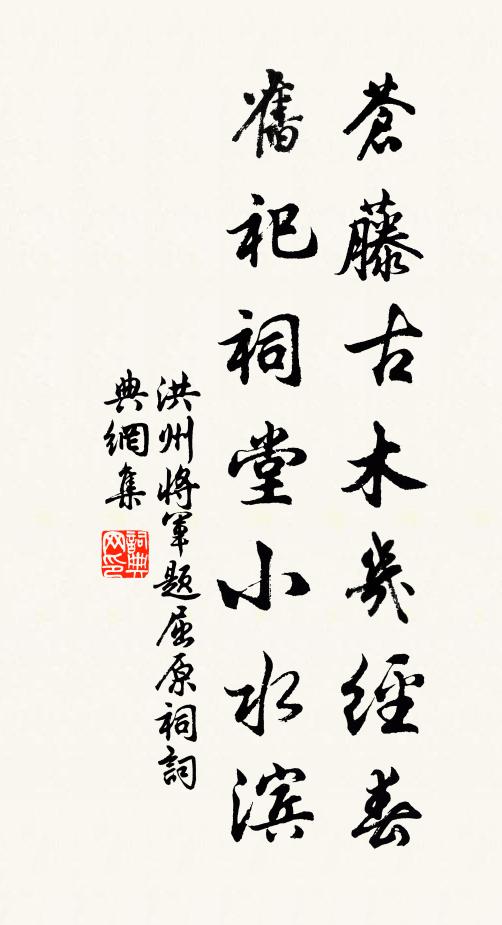 蒼藤古木幾經春
舊祀祠堂小水濱
洪州將軍題屈原祠詞
典網集
詞典网印